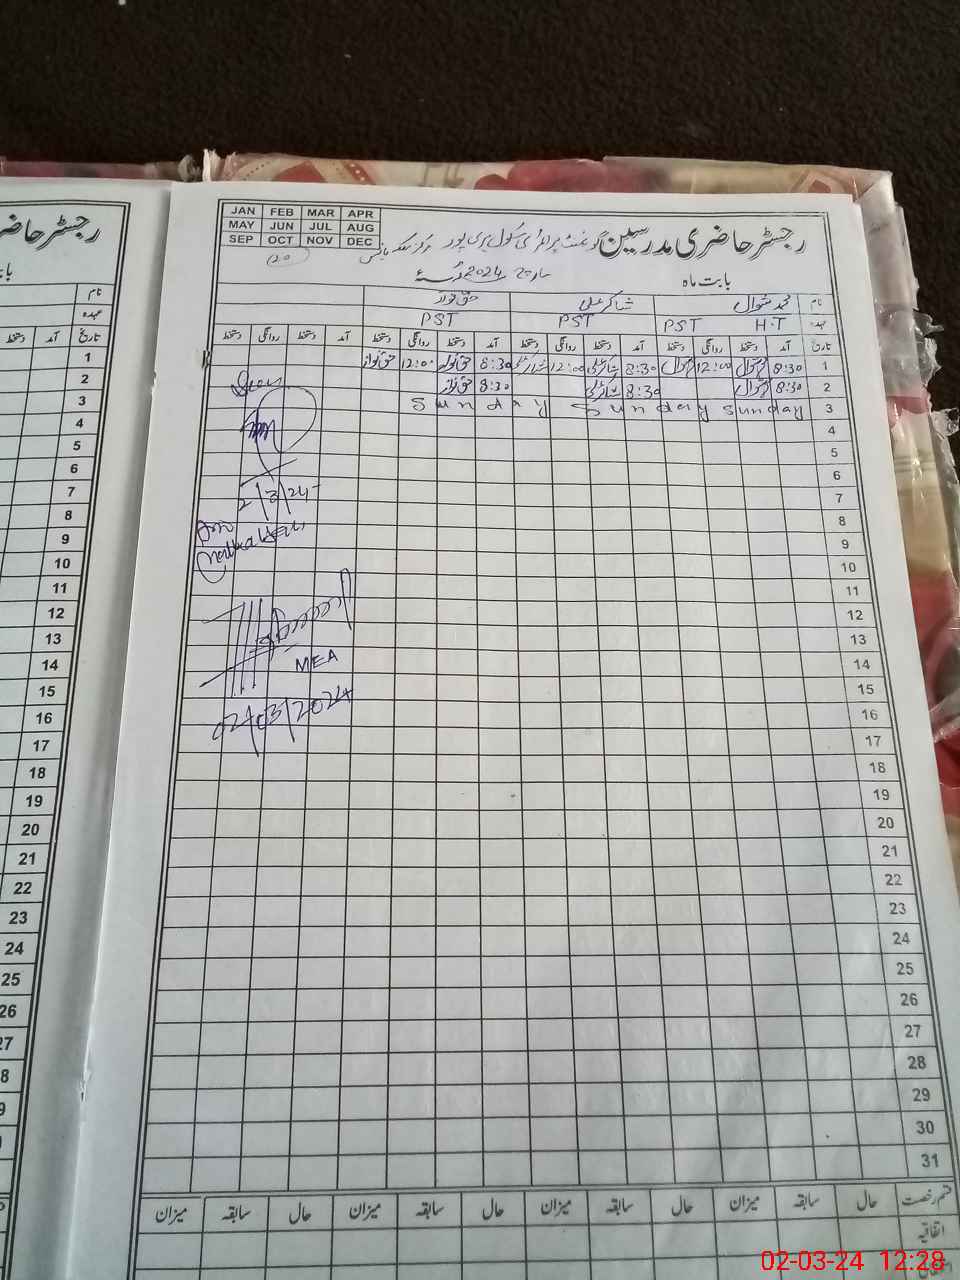 رجسٹر حاضر
JAN FEB MAR APR
MAY JUN JUL AUG
SEP OCT NOV DEC
رجسٹر حاضری مدرسین گورنمنٹ پرائمری سکول
بابت ماہ مارچ 2024ء
نام محمد شوال شاکر علی حق نواز
عہدہ H.T PST PST PST
تاریخ آمد دستخط روانگی دستخط آمد دستخط روانگی دستخط آمد دستخط روانگی دستخط آمد دستخط روانگی دستخط
1 8:30 شوال 12:00 شوال 8:30 شاکر علی 12:00 شاکر علی 8:30 حق نواز 12:00 حق نواز
2 8:30 شوال 8:30 شاکر علی 8:30 حق نواز
3 Sunday Sunday Sunday
4
5
6
7
8
9
10
11
12
13
14
15
16
17
18
19
20
21
22
23
24
25
26
27
28
29
30
31
2/3/24
MEA
02/03/2024
قسم رخصت حال سابقہ میزان حال سابقہ میزان حال سابقہ میزان حال سابقہ میزان
اتفاقیہ
نام
عہدہ
تاریخ آمد دستخط
1
2
3
4
5
6
7
8
9
10
11
12
13
14
15
16
17
18
19
20
21
22
23
24
25
26
27
8
9
02-03-24 12:28